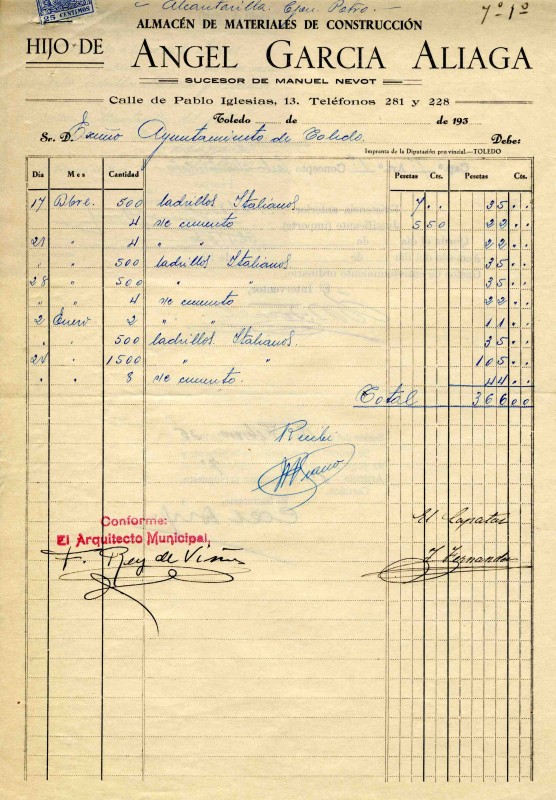 Alcantarilla. Egon. Patro. — 7º 1º
25 CENTIMOS
ALMACÉN DE MATERIALES DE CONSTRUCCIÓN
HIJO DE ANGEL GARCIA ALIAGA
SUCESOR DE MANUEL NEVOT
Calle de Pablo Iglesias, 13. Teléfonos 281 y 228
Toledo de de 193
Sr. D. Excmo Ayuntamiento de Toledo. Debe:
Imprenta de la Diputación provincial.—TOLEDO
Día Mes Cantidad Pesetas Cts. Pesetas Cts.
17 Dbre. 500 ladrillos Italianos 7 . . 35 . .
4 s/c cemento 5 50 22 . .
21 " 4 " " 22 . .
" " 500 ladrillos Italianos. 35 . .
28 " 500 " " 35 . .
" " 4 s/c cemento 22 . .
2 Enero 2 " " 11 . .
" " 500 ladrillos Italianos. 35 . .
" 1500 " " 105 . .
" " 8 s/c cemento. 44 . .
Total 366 00
Recibi
Conforme:
El Arquitecto Municipal,
F. Rey de Viñas
El Capataz
J. Fernandez